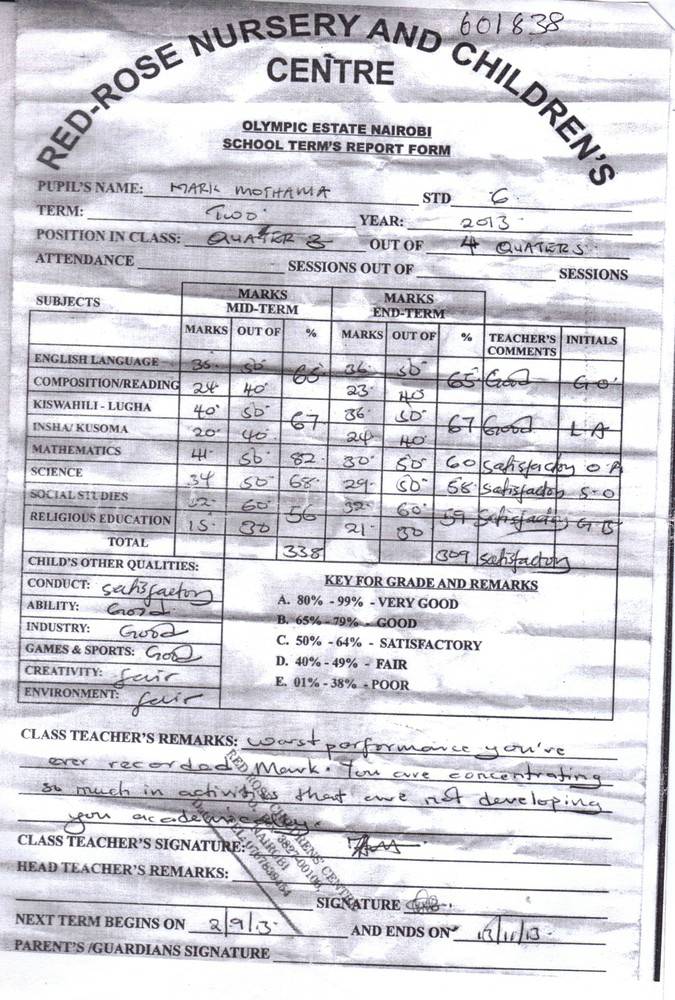 601838
RED-ROSE NURSERY AND CHILDREN'S
CENTRE
OLYMPIC ESTATE NAIROBI
SCHOOL TERM'S REPORT FORM
PUPIL'S NAME: MARK MOTHAMA STD 6
TERM: TWO YEAR: 2013
POSITION IN CLASS: QUATER 3 OUT OF 4 QUATERS
ATTENDANCE SESSIONS OUT OF SESSIONS
SUBJECTS MARKS MID-TERM MARKS END-TERM
MARKS OUT OF % MARKS OUT OF % TEACHER'S COMMENTS INITIALS
ENGLISH LANGUAGE 35 50 66 36 50 65 Good G.O
COMPOSITION/READING 24 40 23 40
KISWAHILI - LUGHA 40 50 67 36 50 67 Good L.A
INSHA/ KUSOMA 20 40 24 40
MATHEMATICS 41 50 82 30 50 60 satisfactory O.A
SCIENCE 34 50 68 29 50 58 satisfactory S.O
SOCIAL STUDIES 32 60 56 32 60 59 satisfactory G.B
RELIGIOUS EDUCATION 15 30 21 30
TOTAL 338 309 satisfactory
CHILD'S OTHER QUALITIES:
CONDUCT: satisfactory
ABILITY: Good
INDUSTRY: Good
GAMES & SPORTS: Good
CREATIVITY: fair
ENVIRONMENT: fair
KEY FOR GRADE AND REMARKS
A. 80% - 99% - VERY GOOD
B. 65% - 79% - GOOD
C. 50% - 64% - SATISFACTORY
D. 40% - 49% - FAIR
E. 01% - 38% - POOR
CLASS TEACHER'S REMARKS: worst performance you've
ever recorded Mark. You are concentrating
so much in activities that are not developing
you academically.
CLASS TEACHER'S SIGNATURE:
HEAD TEACHER'S REMARKS:
SIGNATURE
NEXT TERM BEGINS ON 2/9/13 AND ENDS ON 13/11/13
PARENT'S /GUARDIANS SIGNATURE
RED ROSE CHILDRENS' CENTRE
NAIROBI